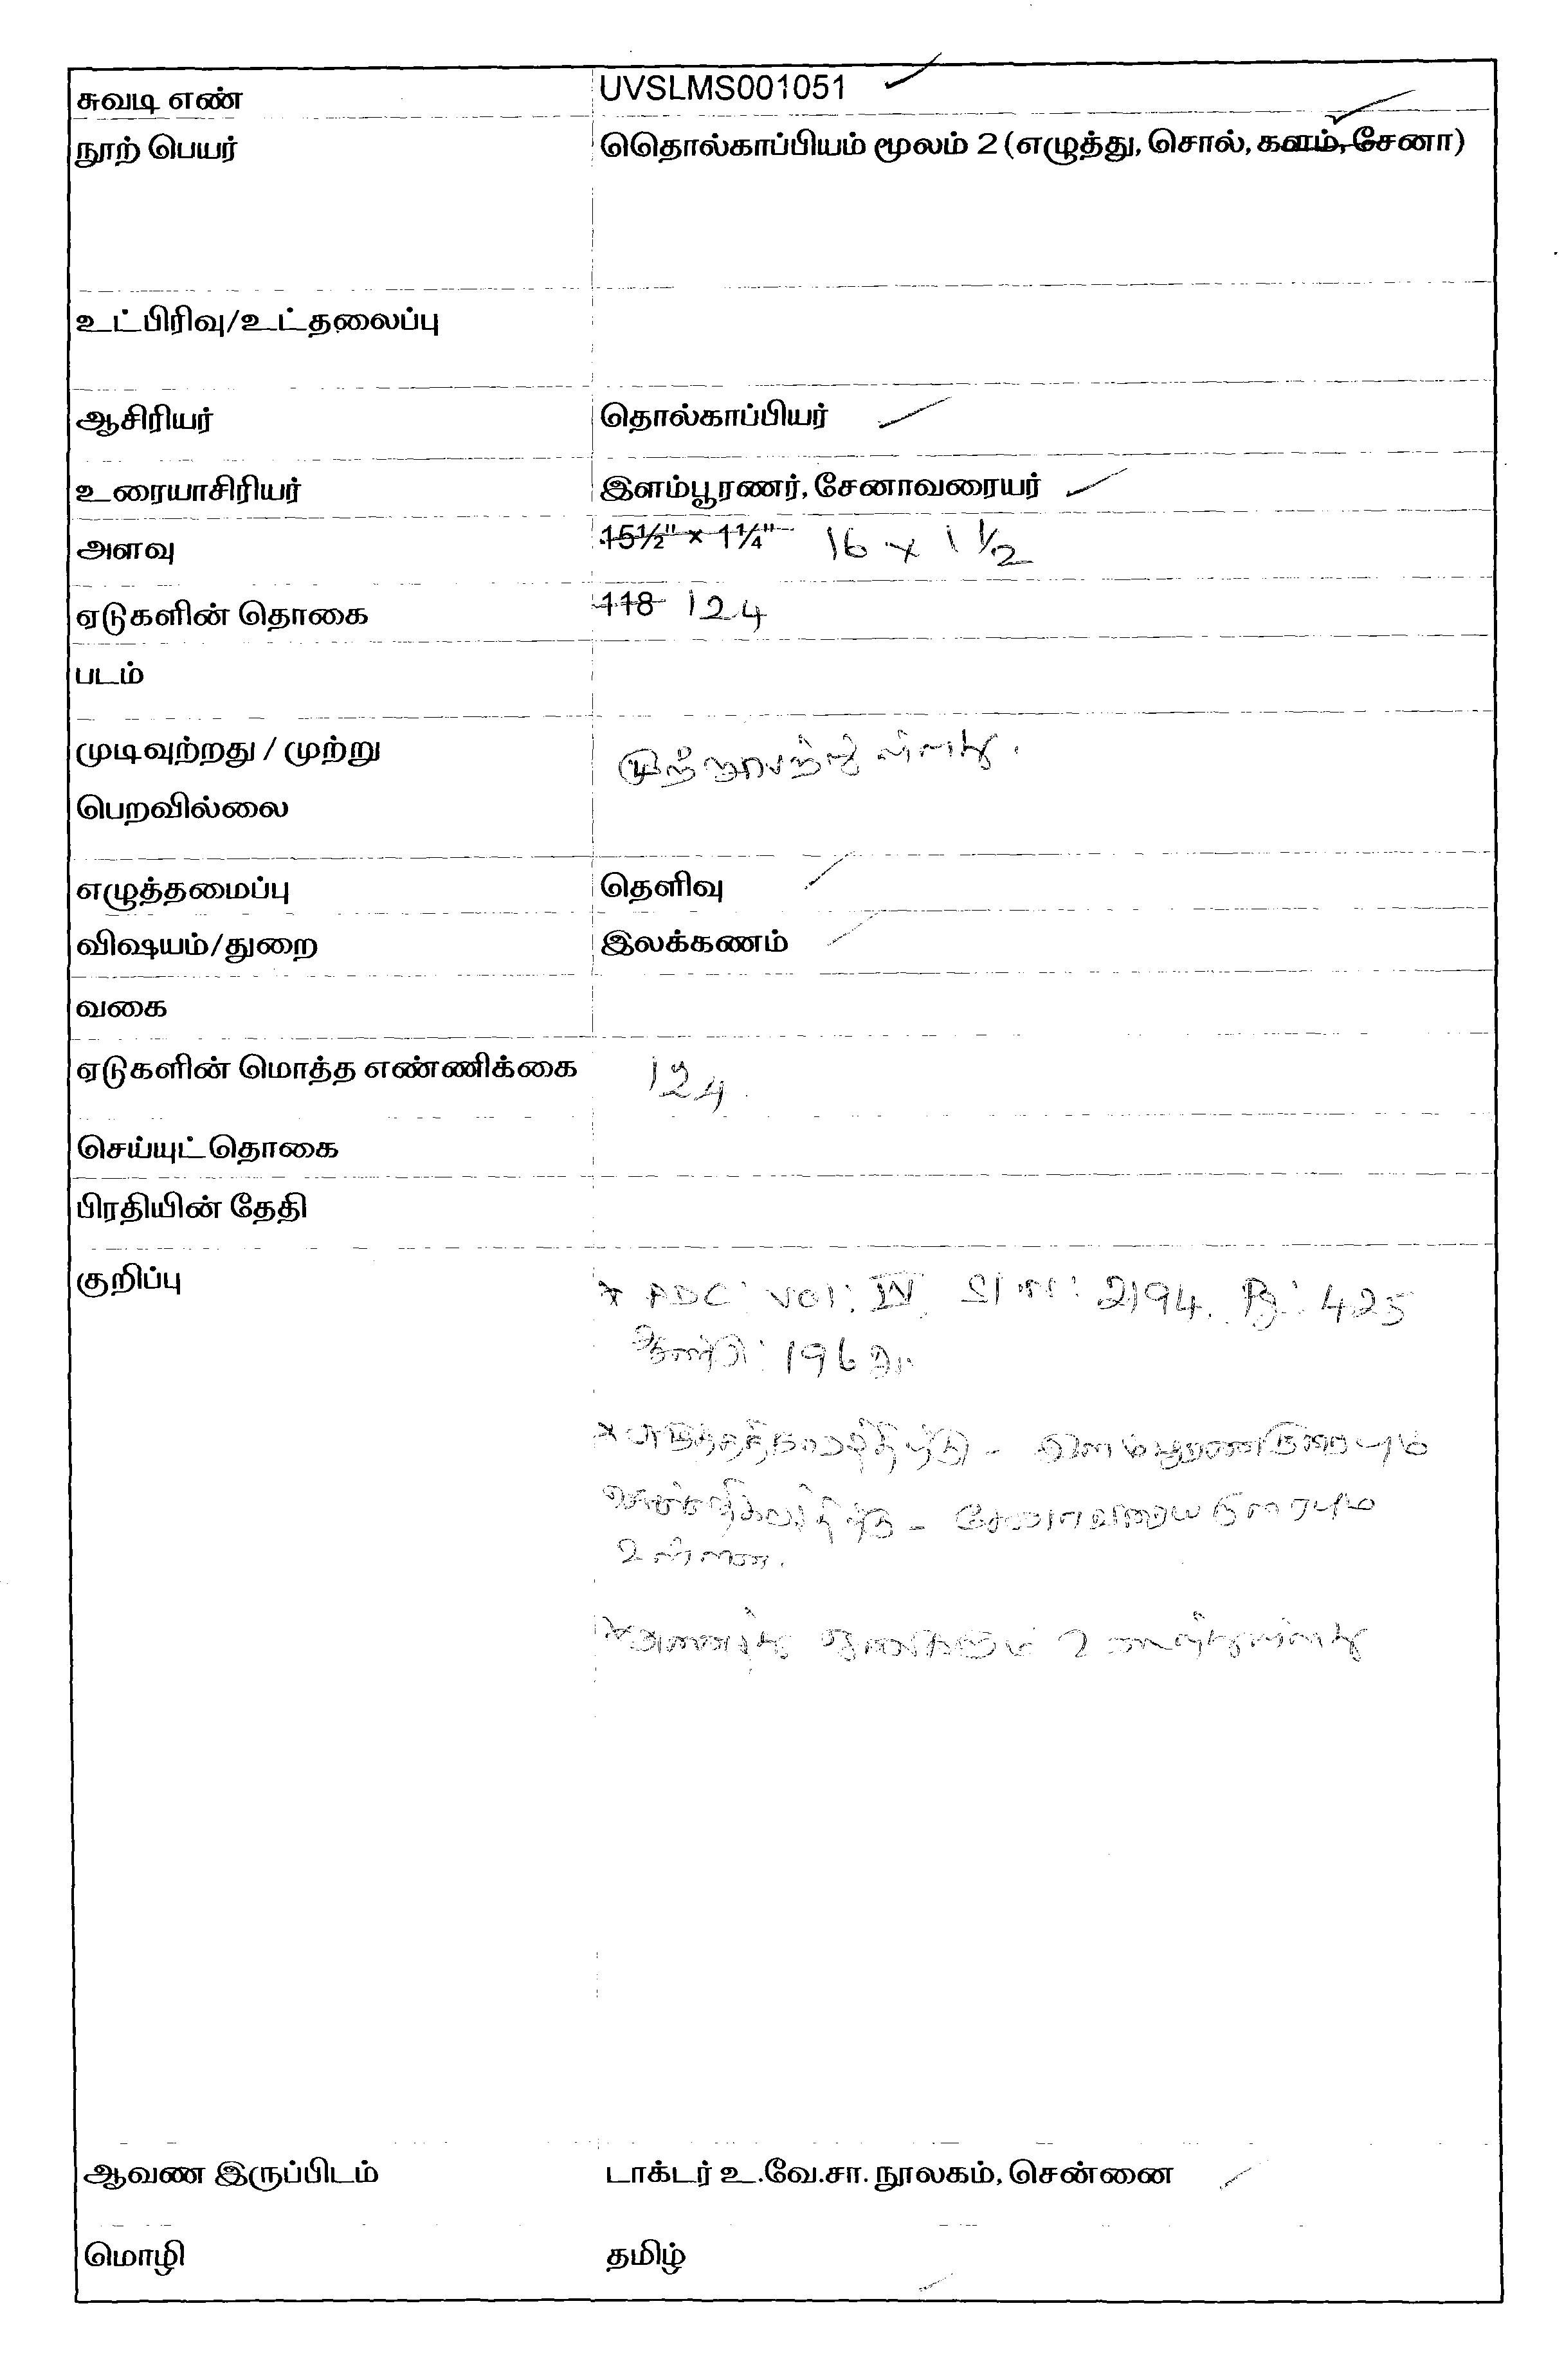 சுவடி எண் UVSLMS001051
நூற் பெயர் தொல்காப்பியம் மூலம் 2 (எழுத்து, சொல், களம், சேனா)
உட்பிரிவு/உட்தலைப்பு
ஆசிரியர் தொல்காப்பியர்
உரையாசிரியர் இளம்பூரணர், சேனாவரையர்
அளவு 15½" × 1¼" 16 x 1 ½
ஏடுகளின் தொகை 118 124
படம்
முடிவுற்றது / முற்று முற்றுபெற்றுள்ளது.
பெறவில்லை
எழுத்தமைப்பு தெளிவு
விஷயம்/துறை இலக்கணம்
வகை
ஏடுகளின் மொத்த எண்ணிக்கை 124
செய்யுட் தொகை
பிரதியின் தேதி
குறிப்பு * ADC: Vol: IV 2194. Pg: 425
உள்ளன.
ஆவண இருப்பிடம் டாக்டர் உ.வே.சா. நூலகம், சென்னை
மொழி தமிழ்